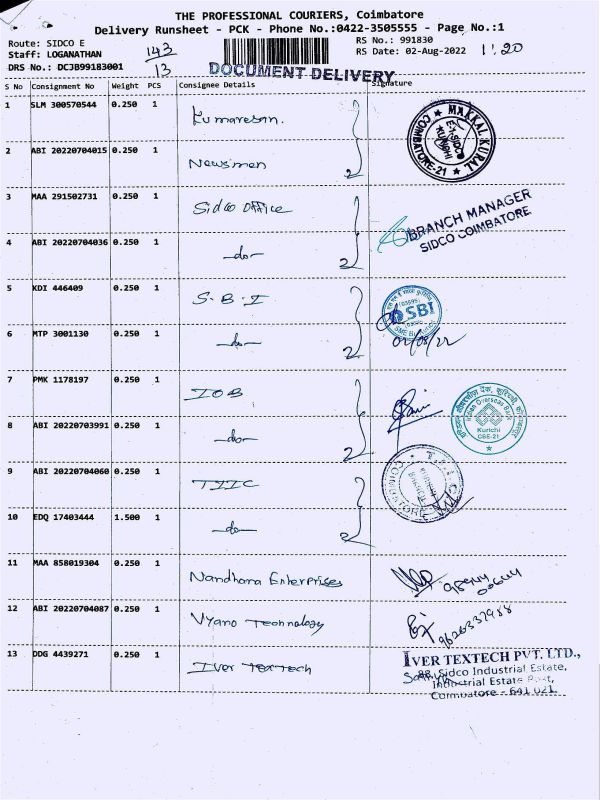 THE PROFESSIONAL COURIERS, Coimbatore
Delivery Runsheet - PCK - Phone No.:0422-3505555 - Page No.:1
Route: SIDCO E
Staff: LOGANATHAN
DRS No.: DCJB99183001
143
13
RS No.: 991830
RS Date: 02-Aug-2022
11:20
DOCUMENT DELIVERY
S No Consignment No Weight PCS Consignee Details Signature
1 SLM 300570544 0.250 1 Kumaresan.
MAKKAL KURAL
COIMBATORE-21
2 ABI 20220704015 0.250 1 Newsmen 2
3 MAA 291502731 0.250 1 Sidco Office
BRANCH MANAGER
SIDCO COIMBATORE
4 ABI 20220704036 0.250 1 -do- 2
5 KDI 446409 0.250 1 S.B.I
SBI
6 MTP 3001130 0.250 1 -do- 2 02/08/22
7 PMK 1178197 0.250 1 IOB
Indian Overseas Bank
Kurichi
CBE-21
8 ABI 20220703991 0.250 1 -do- 2
9 ABI 20220704060 0.250 1 TIIC
COIMBATORE
10 EDQ 17403444 1.500 1 -do- 2
11 MAA 858019304 0.250 1 Nandhana Enterprises
12 ABI 20220704087 0.250 1 Vyano Technology 9626337988
13 DDG 4439271 0.250 1 Iver Textech
IVER TEXTECH PVT. LTD.,
88, Sidco Industrial Estate,
Industrial Estate Post,
Coimbatore - 641 021.